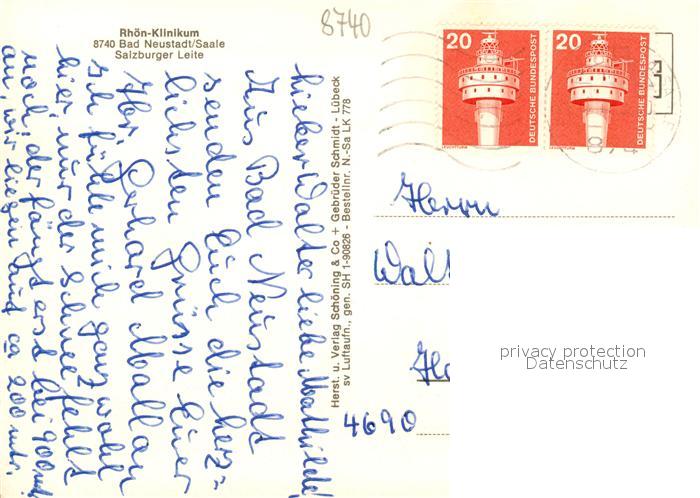 Rhön-Klinikum
8740 Bad Neustadt/Saale
Salzburger Leite
8740
Lieber Walter liebe Mathilde!
Aus Bad Neustadt
senden Euch die herz=
lichsten Grüsse Euer
Gerhard
Ich fühle mich ganz wohl
hier, nur der Schnee fehlt
noch, der fängt erst bei 900 m
an, wir liegen auf ca 200 mtr.
Herst. u. Verlag Schöning & Co + Gebrüder Schmidt - Lübeck
sv Luftaufn., gen. SH 1-90826 - Bestellnr. N.-Sa LK 778
20
DEUTSCHE BUNDESPOST
LEUCHTTURM
20
DEUTSCHE BUNDESPOST
LEUCHTTURM
Herrn
Walt
4690
privacy protection
Datenschutz